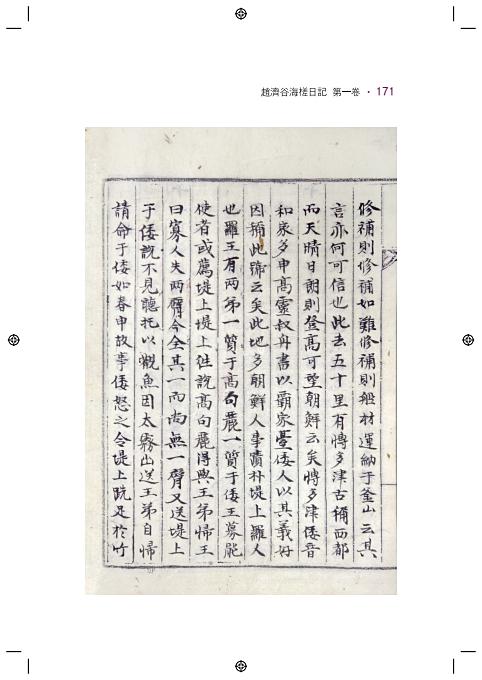 趙濟谷海槎日記 第一卷 · 171
修補則修補如難修補則舩材運納于釜山云其
言亦何可信也此去五十里有愽多津古稱西都
而天晴日朗則登高可望朝鮮云矣愽多津倭音
和家多申高靈叔舟書以覇家臺倭人以其義好
因稱此號云矣此地多朝鮮人事蹟朴堤上羅人
也羅王有兩弟一質于高句麗一質于倭王募能
使者或薦堤上堤上徃說高句麗得與王弟歸王
曰寡人失兩臂今全其一而尙無一臂又送堤上
于倭說不見聽托以觀魚因太霧山送王弟自歸
請命于倭如春申故事倭怒之令堤上跣足於竹